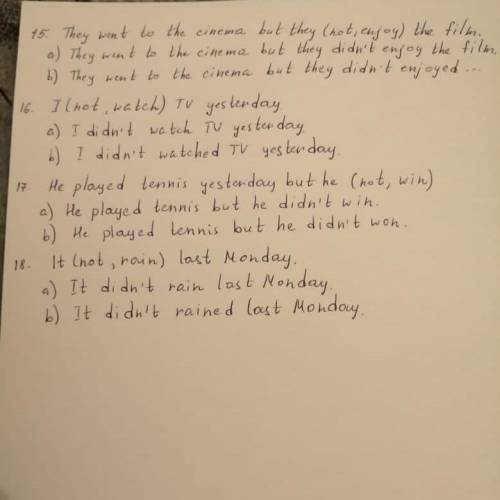 15. They went to the cinema but they (not, enjoy) the film.
a) They went to the cinema but they didn't enjoy the film.
b) They went to the cinema but they didn't enjoyed ...
16. I (not, watch) TV yesterday
a) I didn't watch TV yesterday.
b) I didn't watched TV yesterday.
17. He played tennis yesterday but he (not, win)
a) He played tennis but he didn't win.
b) He played tennis but he didn't won.
18. It (not, rain) last Monday.
a) It didn't rain last Monday.
b) It didn't rained last Monday.